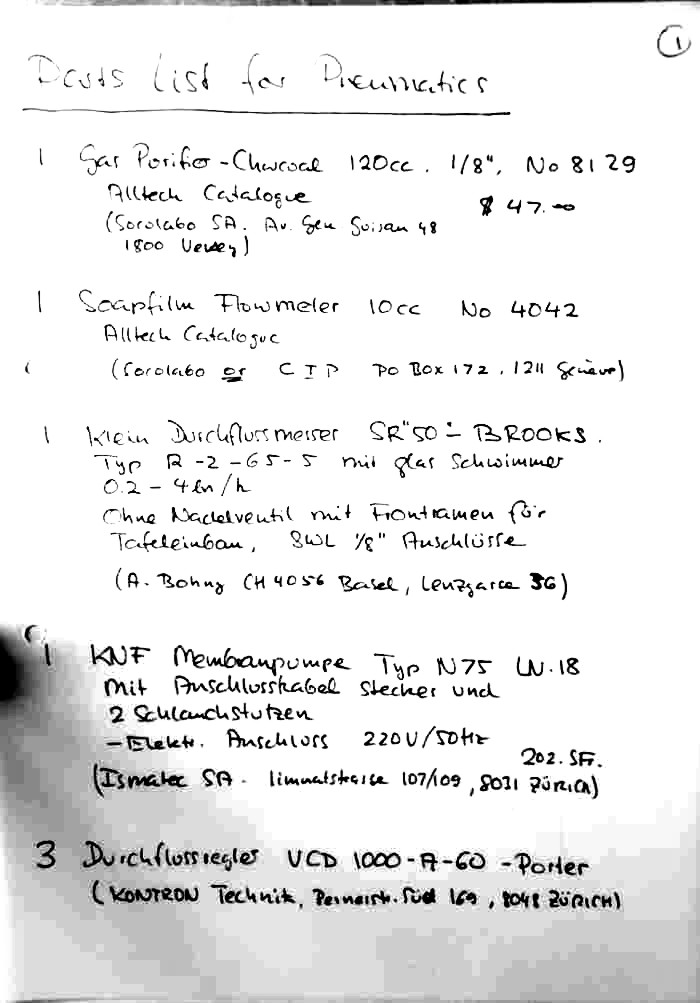 1
Parts List for Pneumatics
1 Gas Purifier - Charcoal 120cc. 1/8", No 8129
Alltech Catalogue $ 47.-
(Sorolabo SA. Av. Gen Guisan 48
1800 Vevey)
1 Soapfilm Flowmeter 10cc No 4042
Alltech Catalogue
(Sorolabo or CIP PO Box 172, 1211 Genève)
1 Klein Durchflussmesser SR "50" - BROOKS.
Typ R-2-65-5 mit glas Schwimmer
0.2 - 4 ln/h
Ohne Nadelventil mit Frontramen für
Tafeleinbau, SWL 1/8" Anschlüsse
(A. Bohny CH 4056 Basel, Lenzgasse 36)
1 KNF Membranpumpe Typ N75 LN.18
mit Anschlusskabel Stecker und
2 Schlauchstutzen
- Elektr. Anschluss 220V/50Hz
202. SFr.
(Ismatec SA. limmatstrasse 107/109, 8031 ZÜRICH)
3 Durchflussregler VCD 1000-A-60 - Porter
(KONTRON Technik, Süd 169, 8048 ZÜRICH)